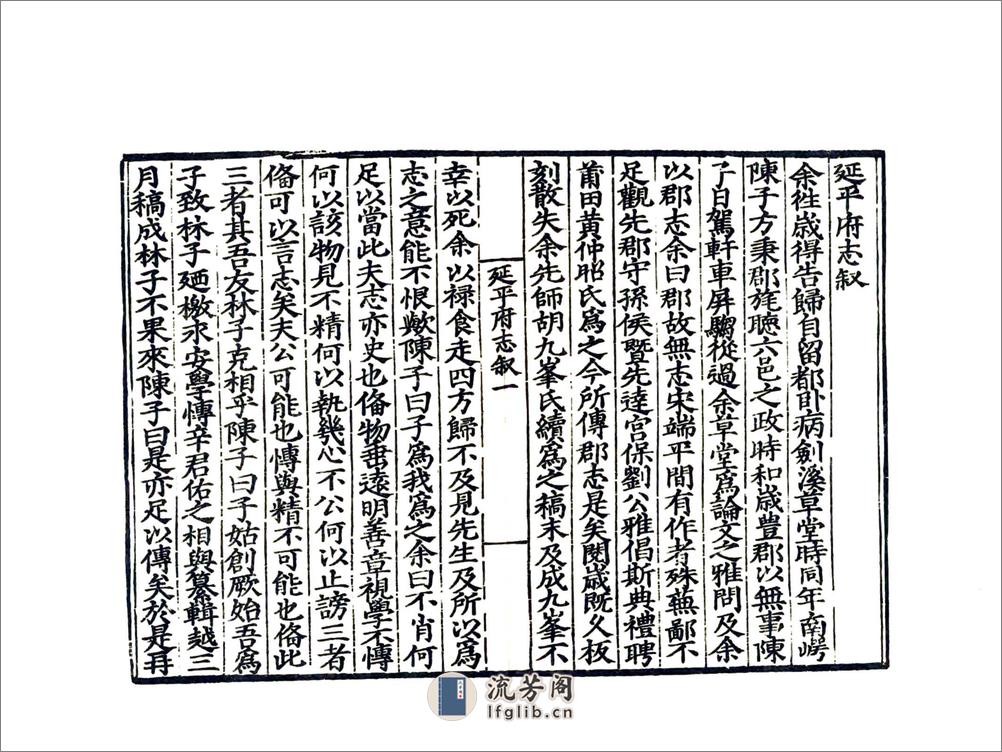 延平府志叙
余徃歲得告歸自留都卧病劍溪草堂時同年南㟧
陳子方秉郡旄聽六邑之政時和歲豊郡以無事陳
子日駕軒車屏騶從過余草堂爲論文之雅問及余
以郡志余曰郡故無志宋端平間有作者殊蕪鄙不
足觀先郡守孫侯暨先逹宫保劉公雅倡斯典禮聘
莆田黄仲昭氏爲之今所傳郡志是矣閱歲既久板
刻散失余先師胡九峯氏續爲之稿未及成九峯不
延平府志叙一
幸以死余以禄食走四方歸不及見先生及所以爲
志之意能不恨歟陳子曰子爲我爲之余曰不肖何
足以當此夫志亦史也俻物垂遠明善章視學不愽
何以該物見不精何以執幾心不公何以止謗三者
俻可以言志矣夫公可能也愽與精不可能也俻此
三者其吾友林子克相乎陳子曰子姑創厥始吾爲
子致林子廼檄永安學愽辛君佑之相與纂輯越三
月稿成林子不果來陳子曰是亦足以傳矣於是再
流芳阁
lfglib.cn